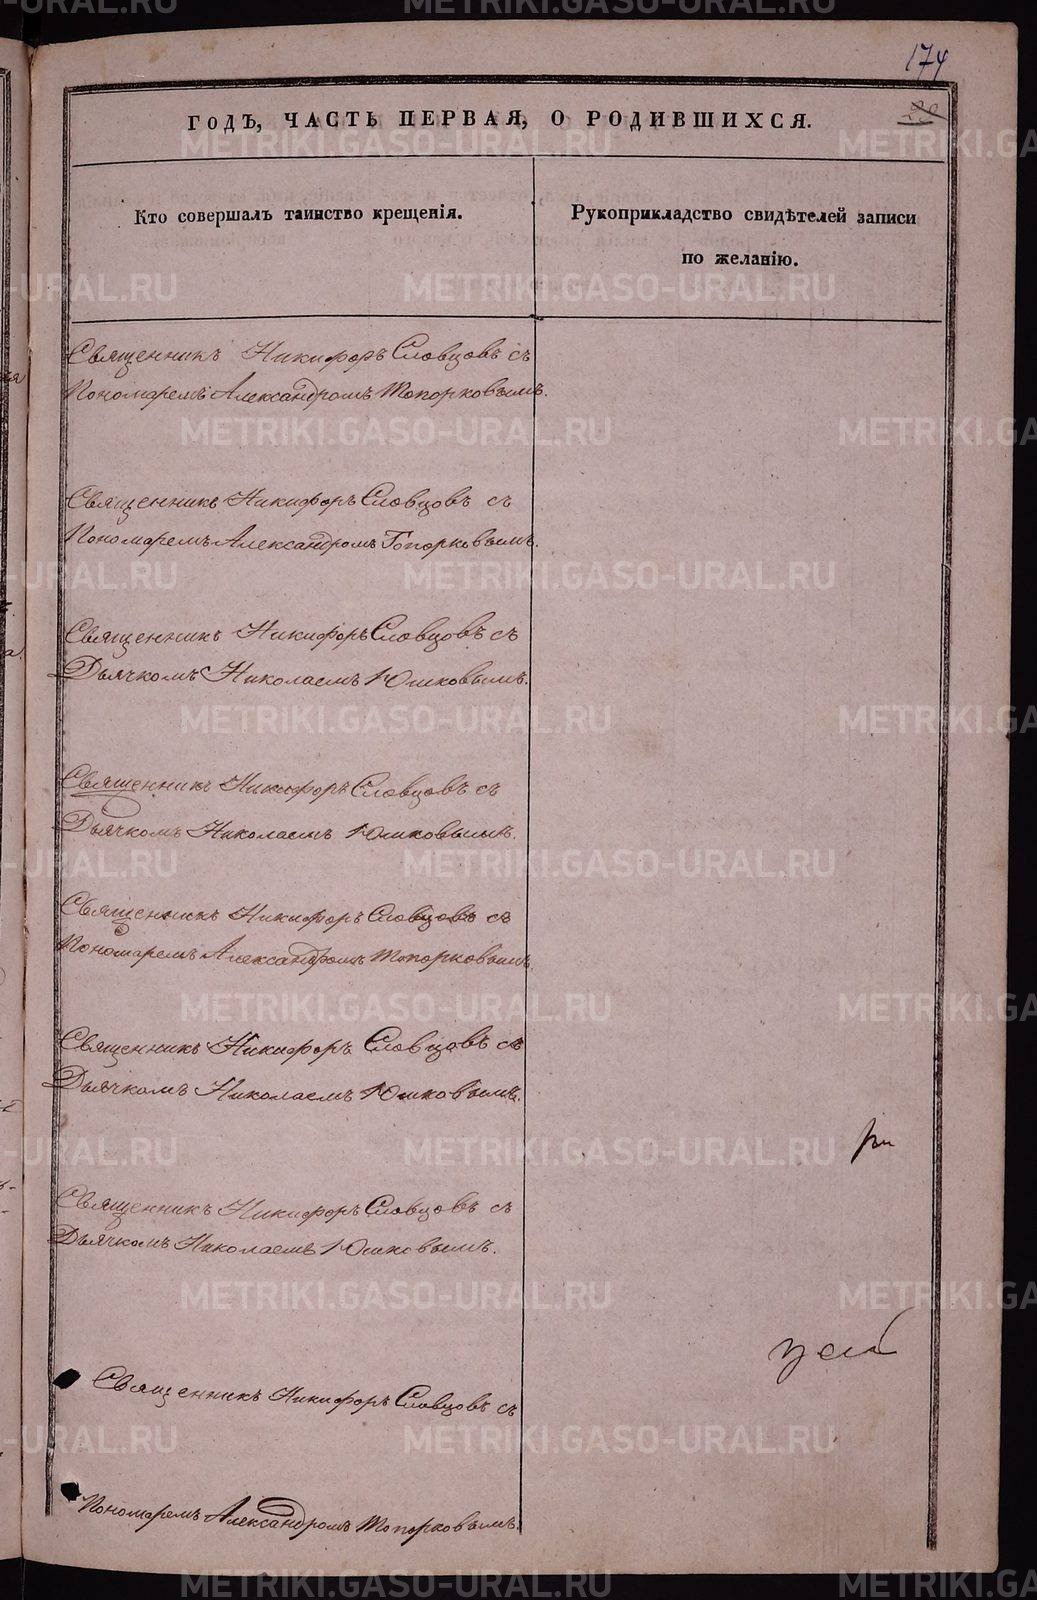 174
ГОДЪ, ЧАСТЬ ПЕРВАЯ, О РОДИВШИХСЯ.
Кто совершалъ таинство крещенія.
Рукоприкладство свидѣтелей записи
по желанію.
Священникъ Никифоръ Словцовъ съ
Пономаремъ Александромъ Топорковымъ.
Священникъ Никифоръ Словцовъ съ
Пономаремъ Александромъ Топорковымъ.
Священникъ Никифоръ Словцовъ съ
Дьячкомъ Николаемъ Юшковымъ.
Священникъ Никифоръ Словцовъ съ
Дьячкомъ Николаемъ Юшковымъ.
Священникъ Никифоръ Словцовъ съ
Пономаремъ Александромъ Топорковымъ.
Священникъ Никифоръ Словцовъ съ
Дьячкомъ Николаемъ Юшковымъ.
Священникъ Никифоръ Словцовъ съ
Дьячкомъ Николаемъ Юшковымъ.
Священникъ Никифоръ Словцовъ съ
Пономаремъ Александромъ Топорковымъ.
METRIKI.GASO-URAL.RU